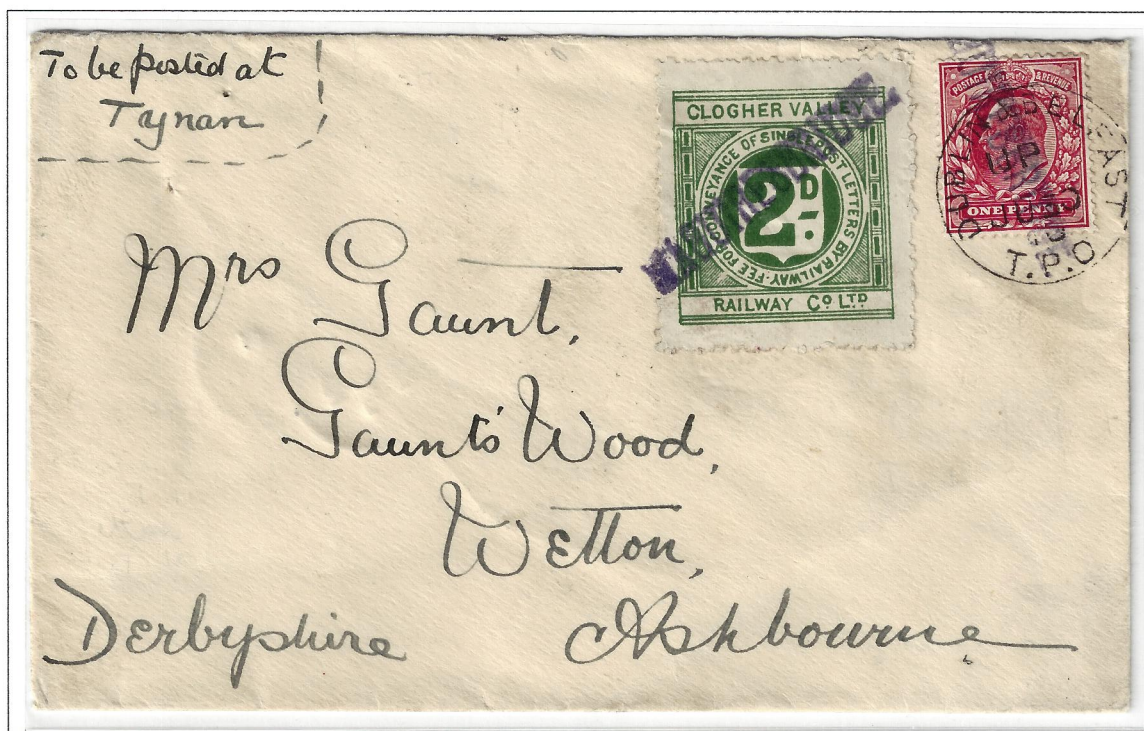 To be posted at
Tynan
CLOGHER VALLEY
FEE FOR CONVEYANCE OF SINGLE POST LETTERS BY RAILWAY
2D
RAILWAY Co LTD
POSTAGE & REVENUE
ONE PENNY
DUBLIN & BELFAST
T.P.O
Mrs Gaunt,
Gaunt's Wood,
Wetton,
Derbyshire Ashbourne